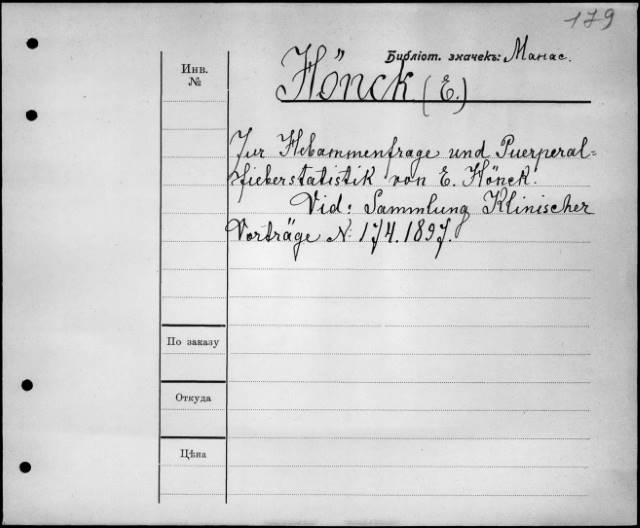 179
Библіот. значекъ: Манас.
Инв.
№
Hönck (E.)
Zur Hebammenfrage und Puerperal=
fieberstatistik von E. Hönck.
Vid: Sammlung Klinischer
Vorträge N. 174. 1897.
По заказу
Откуда
Цѣна